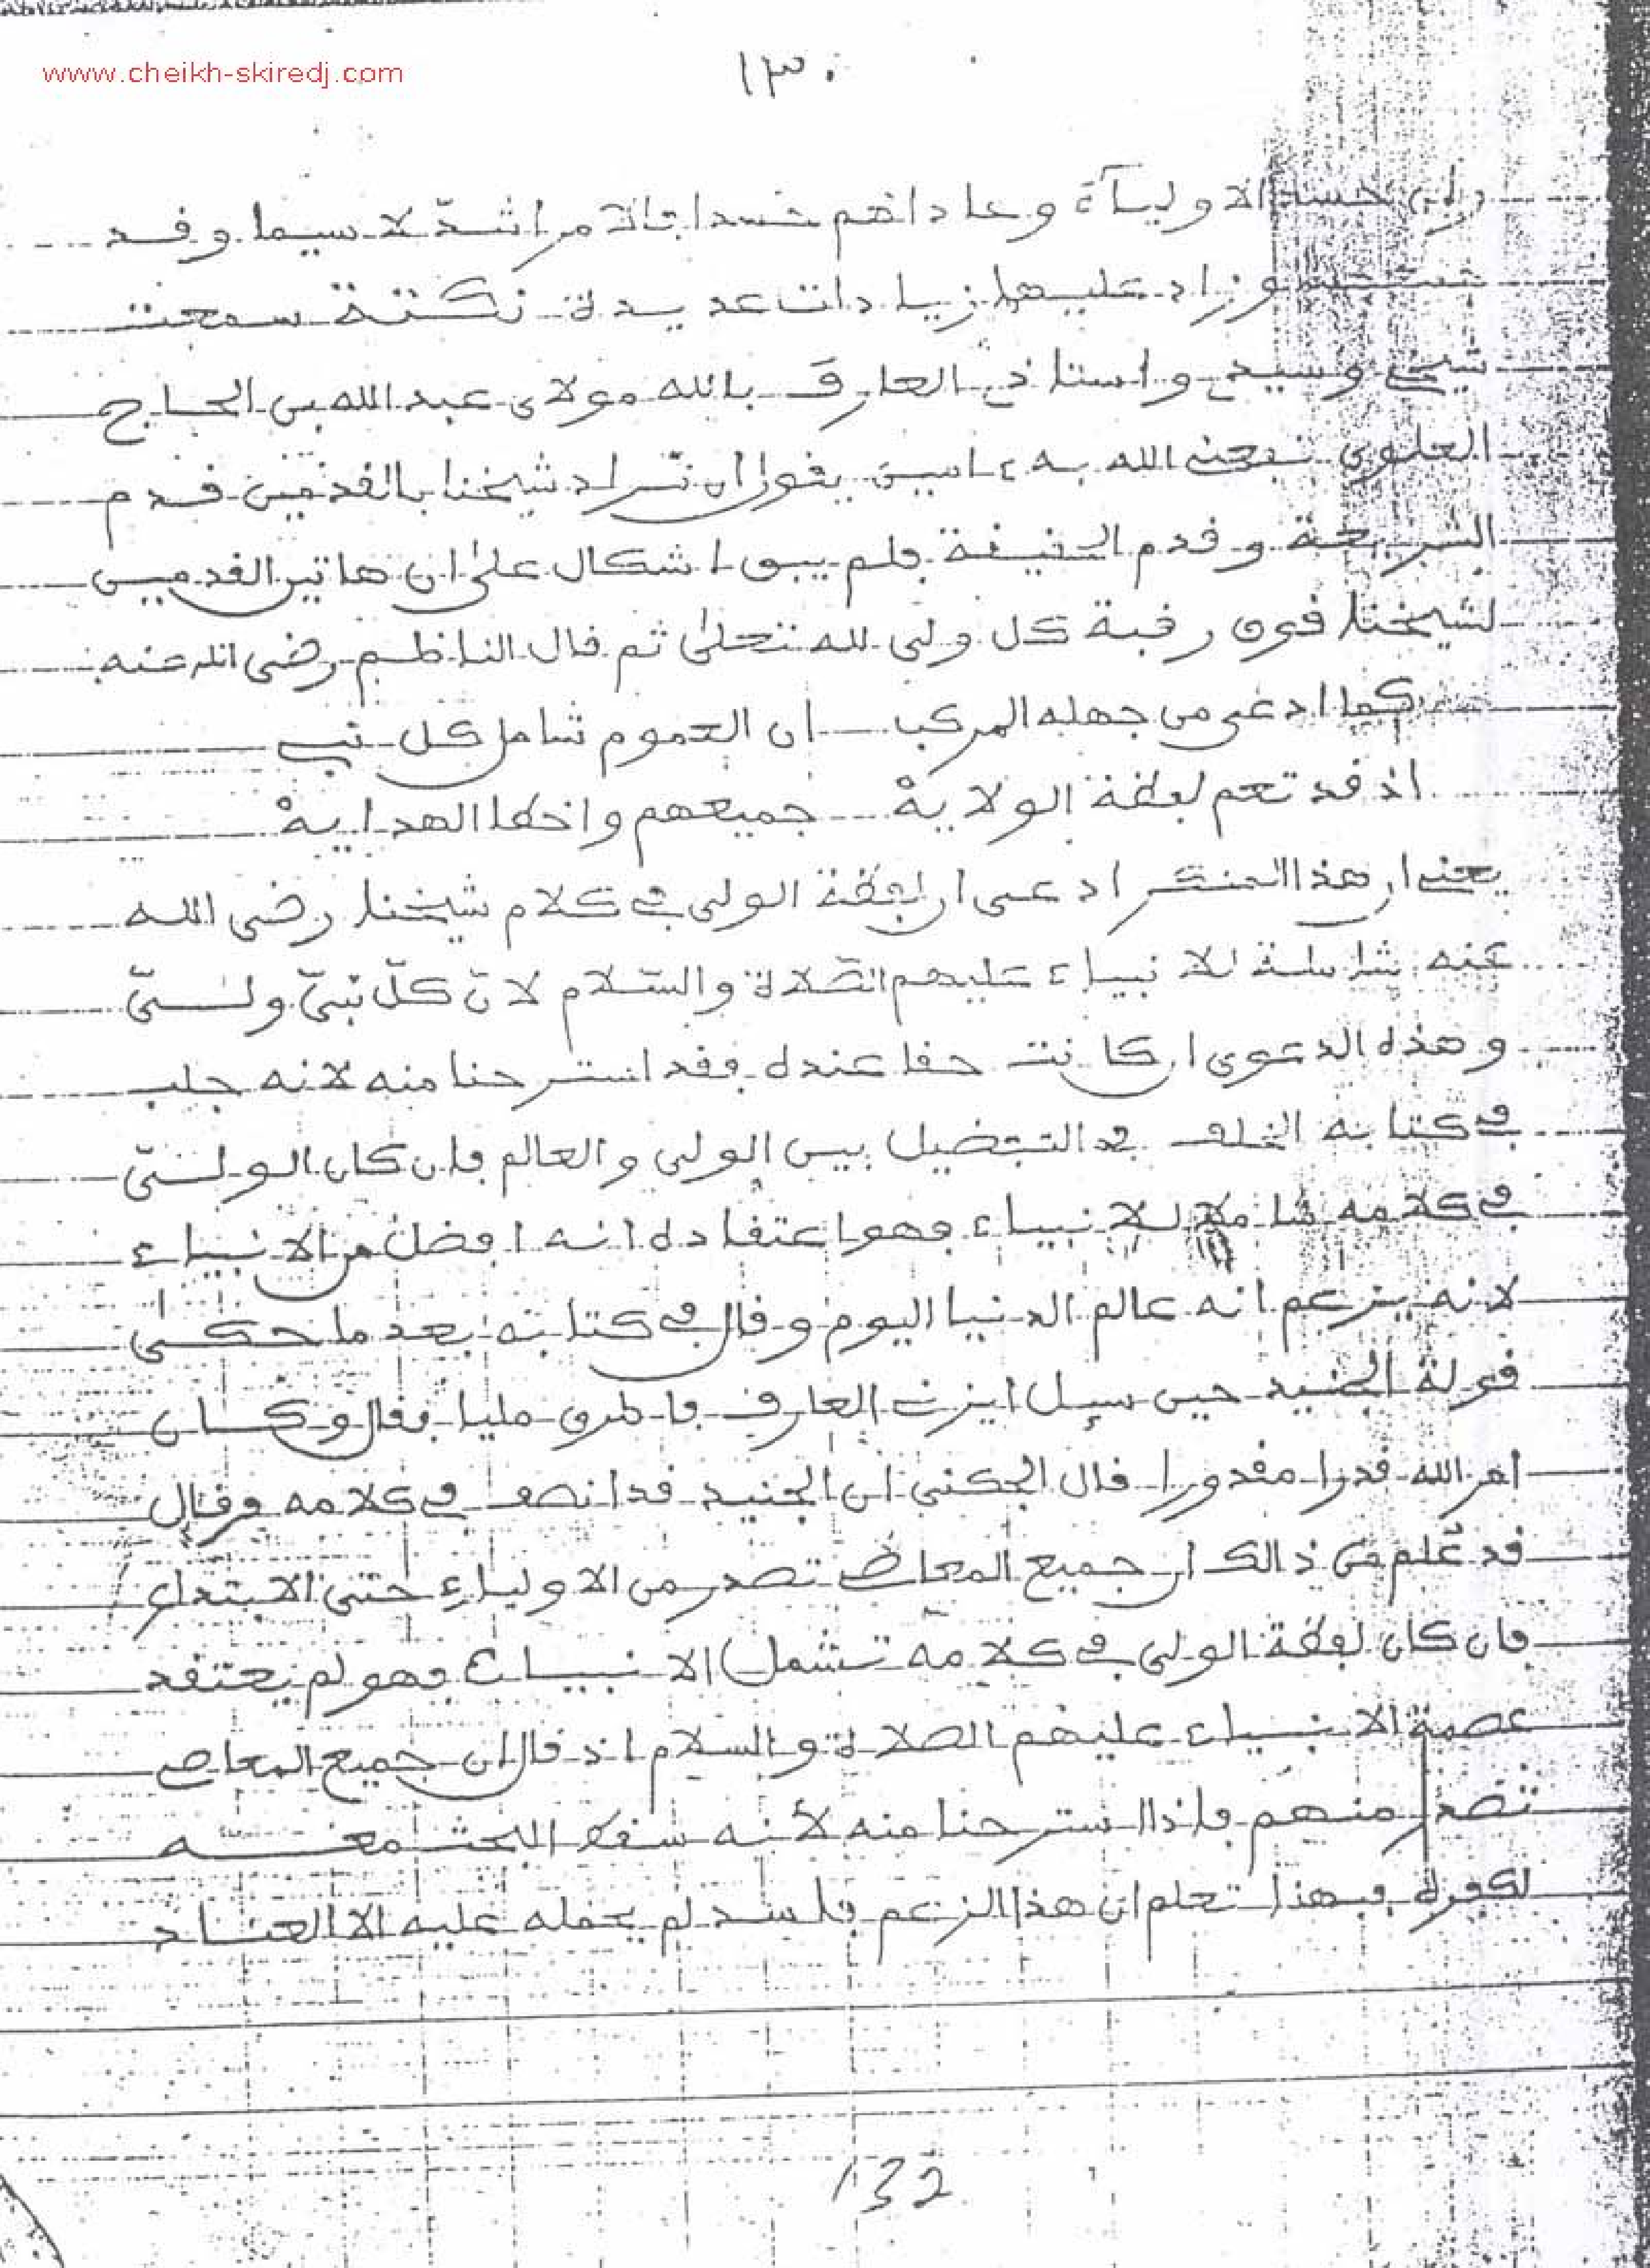 www.cheikh-skiredj.com
١٣٠
حسد الاولياء وعاداهم اشدّ لاسيما وقد
وزاد عليها زيادات عديدة نكتة سمعت
شيخي وسيدي واستاذي العارف بالله مولاي عبد الله بن الحاج
العلوي نفعني الله به ءامين يقول ان مراد شيخنا بالقدمين قدم
الشريعة وقدم الحقيقة فلم يبق اشكال على ان هاتين القدمين
لشيخنا فوق رقبة كل ولي لله تعلى ثم قال الناظم رضي الله عنه
كما ادعى من جهله المركب ان العموم شامل كل نبي
اذ قد تعم لفظة الولاية جميعهم واخطا الهداية
يعني ان هذا المنكر ادعى ان لفظة الولي في كلام شيخنا رضي الله
عنه شاملة للانبياء عليهم الصّلاة والسّلام لانّ كلّ نبيّ وليّ
وهذه الدعوى ان كانت حقا عنده فقد استرحنا منه لانه جلب
في كتابه الخلف في التفضيل بين الولي والعالم فان كان الوليّ
في كلامه شاملا للانبياء فهو اعتقاده انه افضل من الانبياء
لانه يزعم انه عالم الدنيا اليوم وقال في كتابه بعد ما حكى
قولة الجنيد حين سيل ايزني العارف فاطرق مليا فقال وكان
امر الله قدرا مقدورا قال الجكني ان الجنيد قد انصف في كلامه وقال
قد عُلم من ذالك ان جميع المعاصي تصدر من الاولياء حتى الابتداع
فان كان لفظة الولي في كلامه تشمل الانبياء فهو لم يعتقد
عصمة الانبياء عليهم الصلاة والسلام اذ قال ان جميع المعاصي
تصدر منهم فاذا استرحنا منه لأنه سقط البحث معه
لكفره فبهذا تعلم ان هذا الزعم فاسد لم يحمله عليه الا العناد
132